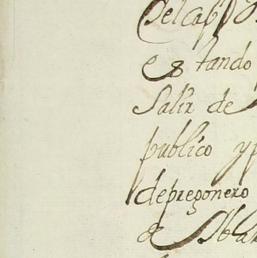 Del cap^n D
estando
Salir de
publico y p
de pregonero